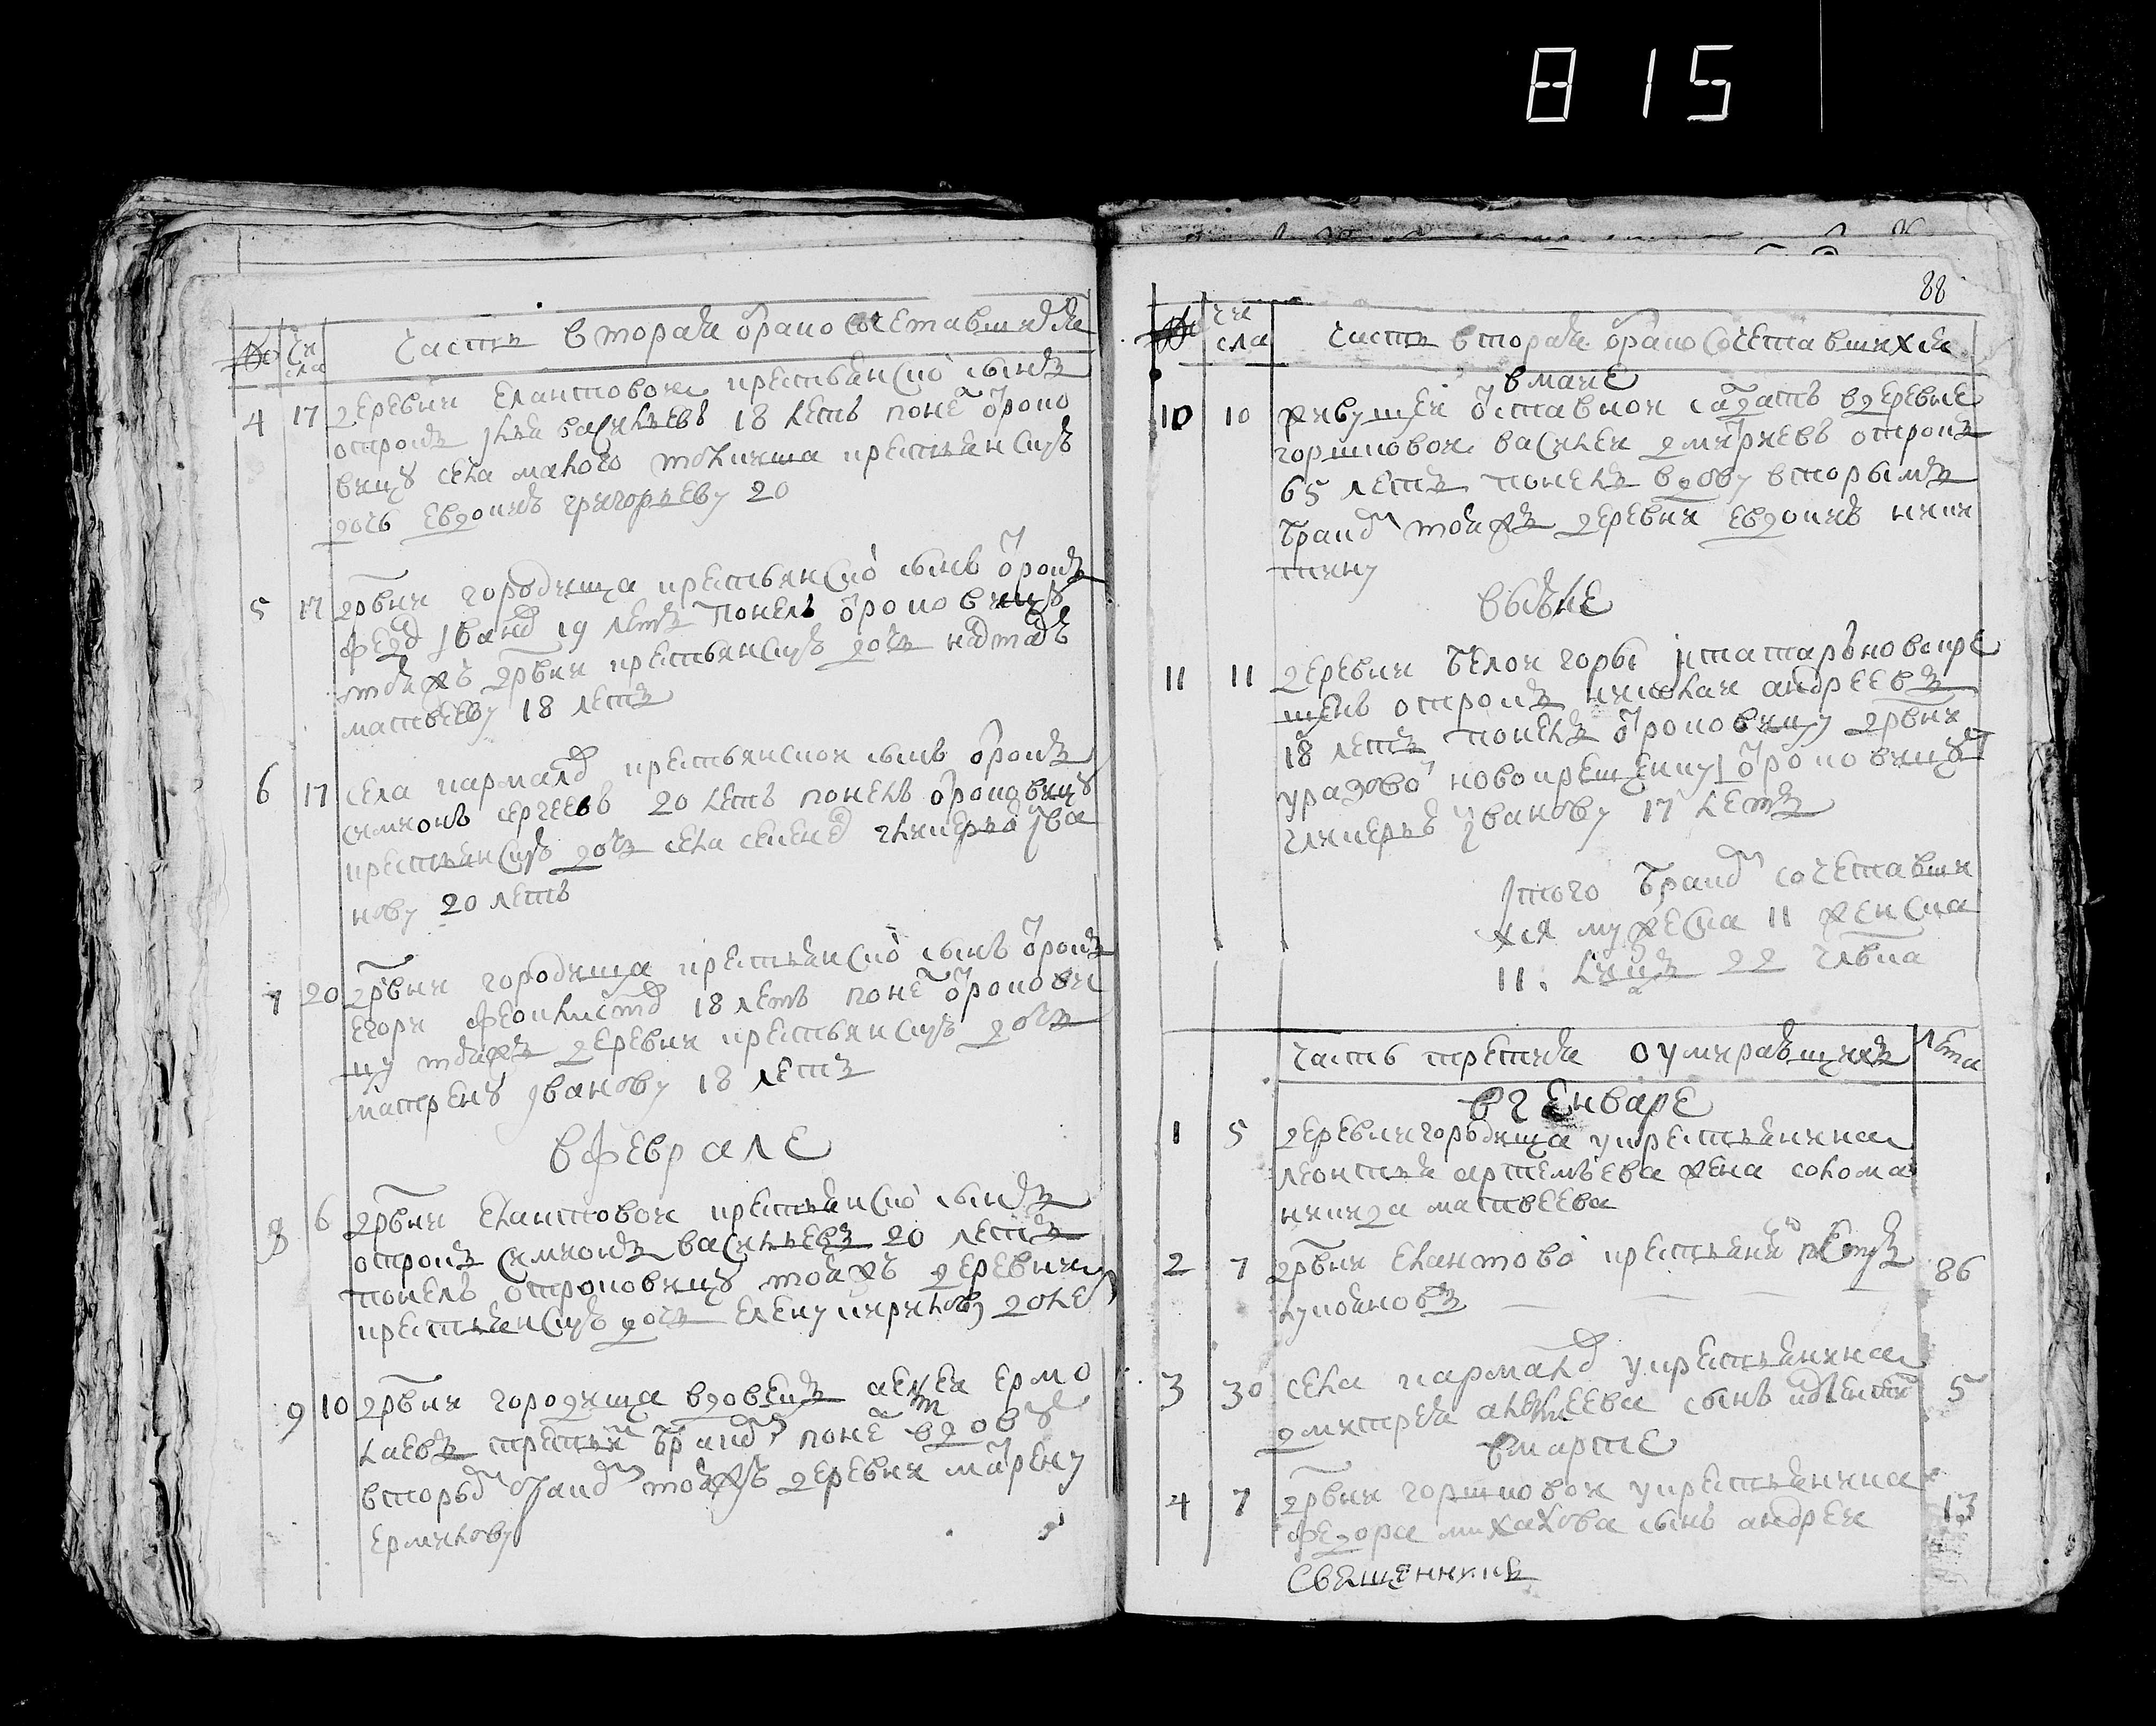 815
88
№ числа Часть вторая о бракосочетавшихся
4 17 деревни Елантовой крестьянской сынъ
отрокъ Илья васильевъ 18 летъ поне отроко
вицу села малого толкиша крестьянскую
дочь евдокию григорьеву 20
5 17 дрвни городища крестьянской сынъ отрокъ
федор Iванов 19 летъ понелъ отроковицу
тояжъ дрвни крестьянскую дочь
матвееву 18 летъ
6 17 села кармалъ крестьянской сынъ отрокъ
симионъ сергеевъ 20 летъ понелъ отроковицу
крестьянскую дочь села гликерью Iва
нову 20 летъ
7 20 дрвни городища крестьянской сынъ отрокъ
егоръ феоклистов 18 летъ поне отрокови
цу тояжъ деревни крестьянскую дочь
матрену Iванову 18 летъ
в феврале
8 6 дрвни елантовой крестьянской сынъ
отрокъ симионъ васильевъ 20 летъ
понелъ отроковицу тояжъ деревни
крестьянскую дочь елену кирилову 20 ле
9 10 дрвни городища вдовецъ ермо
лаевъ третьимъ бракомъ поне вдову
вторымъ бракомъ тояжъ деревни матрену
ермилову
№ числа Часть вторая о бракосочетавшихся
в маие
10 10 живущей отставной салдатъ в деревне
горшковой василей дмитриевъ отрокъ
65 летъ понелъ вдову вторымъ
бракомъ тояжъ деревни евдокию ники
тину
в июле
11 11 деревни белой горы из татаръ новокре
щенъ отрокъ николай андреевъ
18 летъ понелъ отроковицу дрвни
уразовой новокрещеную отроковицу
гликерью Iванову 17 летъ
Iтого бракомъ сочетавши
хся мужеска 11 женска
11. лицъ 22 члвка
часть третия о умиравшихъ лета
в генваре
1 5 деревни городища у крестьянина
леонтья артемьева жена солома
нида матвеева
2 7 дрвни елантовой крестьянинъ петръ 86
лукояновъ
3 30 села кармалъ у крестьянина
дмитрея алексеева сынъ 5
в марте
4 7 дрвни горшковой у крестьянина
федора михайлова сынъ андрей 13
Священникъ